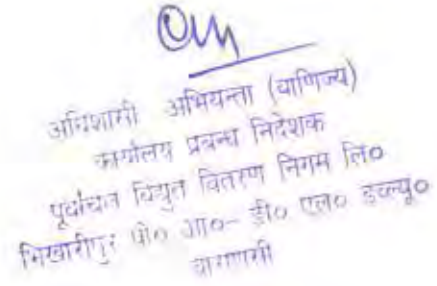 अधिशासी अभियन्ता (वाणिज्य)
कार्यालय प्रबन्ध निदेशक
पूर्वांचल विद्युत वितरण निगम लि०
भिखारीपुर पो० आ०- डी० एल० डब्ल्यू०
वाराणसी